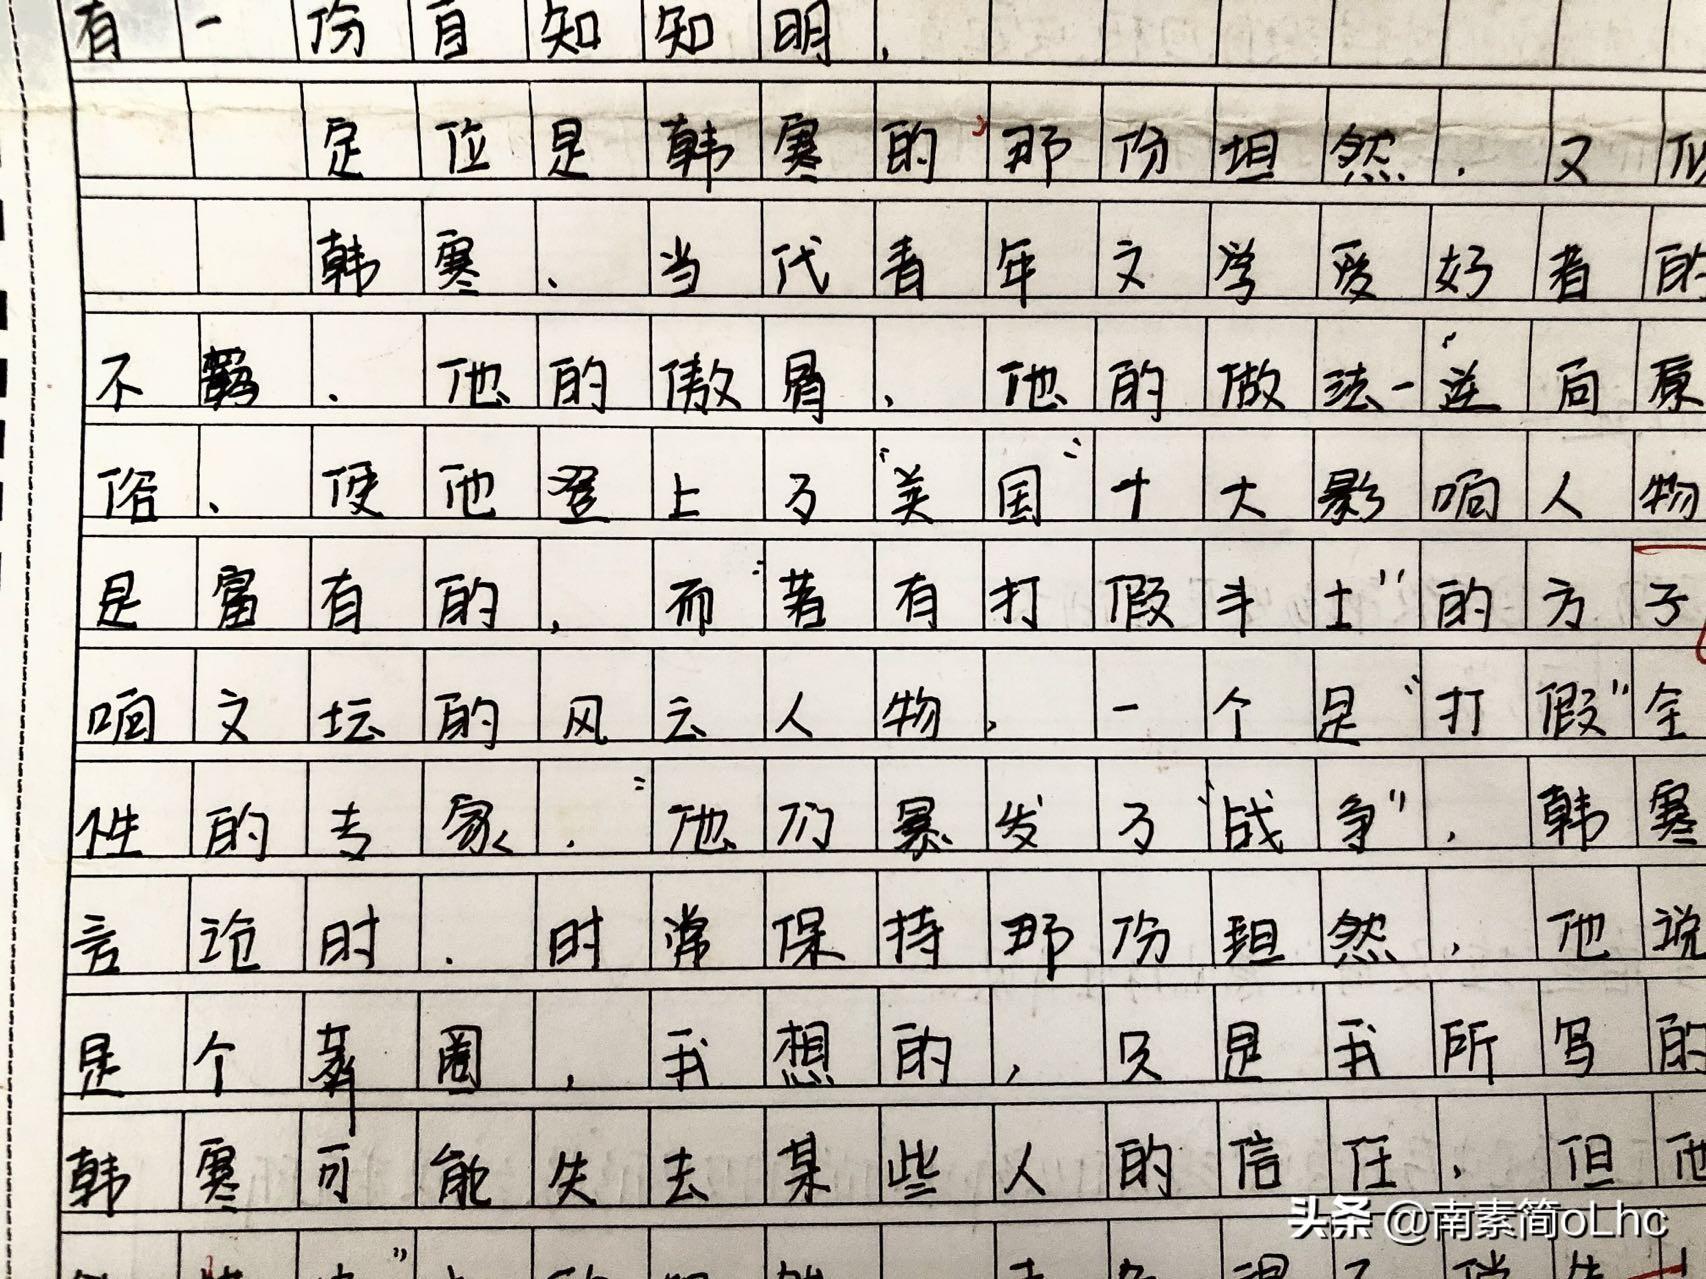 有一份自知知明，
定位是韩寒的那份坦然．又似
韩寒、当代青年文学爱好者的
不羁．他的傲骨，他的做法一连向原
俗、使他登上了“美国”十大影响人物
是富有的，而“著有打假斗士”的方子
响文坛的风云人物，一个是“打假”全
性的专家．“他们暴发了“战争”，韩寒
言论时．时常保持那份坦然，他说
是个粪圈，我想的，只是我所写的
韩寒可能失去某些人的信任，但他
头条 @南素简oLhc